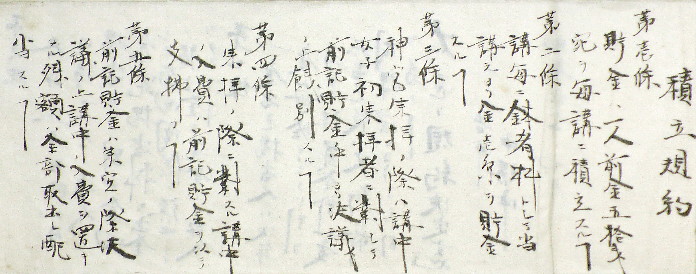 積立規約
第壱條
貯金ハ一人前金五拾銭
宛ヲ毎講ニ積立スルヿ
第二條
講毎ニ 者札トシテ当
講ヨリ金壱 ヲ貯金
スルヿ
第三條
神 参拝ノ際ハ講中
女子初参拝者ニ対シテ
前記貯金中ヨリ決議
ノ上餞別スルヿ
第四條
参拝ノ際ニ対スル講中
ノ入費ハ前記貯金ヲ以テ
支拂フヿ
第五條
前記貯金ハ 会ノ際決
議ノ上講中ノ入費ヲ置キ
 残額ハ全部取出シ配
当スルヿ